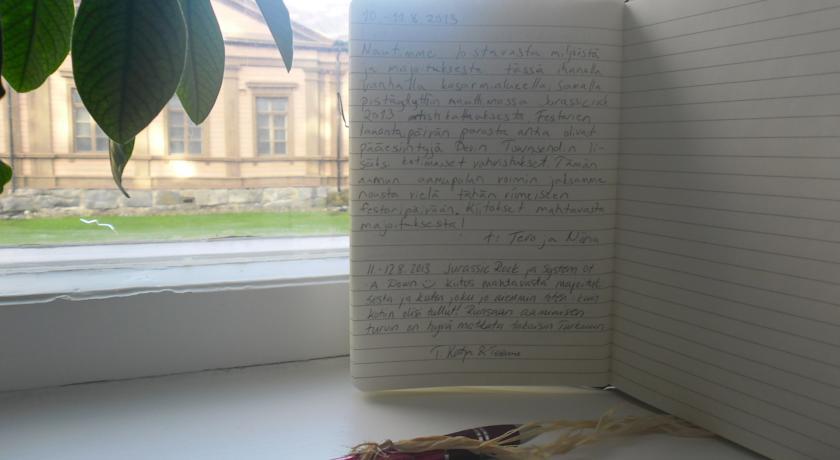 10.-11.8.2013
Nautimme loistavasta miljööstä
ja majoituksesta tässä ihanalla
vanhalla kasarmialueella, samalla
pistäydyttiin muuttamassa Jurassic rock
2013 festarien
lauantaipäivän parasta antia olivat
pääesiintyjä Devin Townsendin li-
säksi kotimaiset vahvistukset. Tämän
aamun aamupalan voimin jaksamme
nousta vielä tähän viimeiseen
festaripäivään. Kiitokset mahtavasta
majoituksesta!
t: Tero ja Niina
11.-12.8.2013 Jurassic Rock ja System Of
A Down kiitos mahtavasta majoituk-
sesta ja kuten joku jo aiemmin totesi kuin
kotiin olisi tullut! Runsaan aamiaisen
turvin on hyvä matkata takaisin Turkuun.
T. Katja &